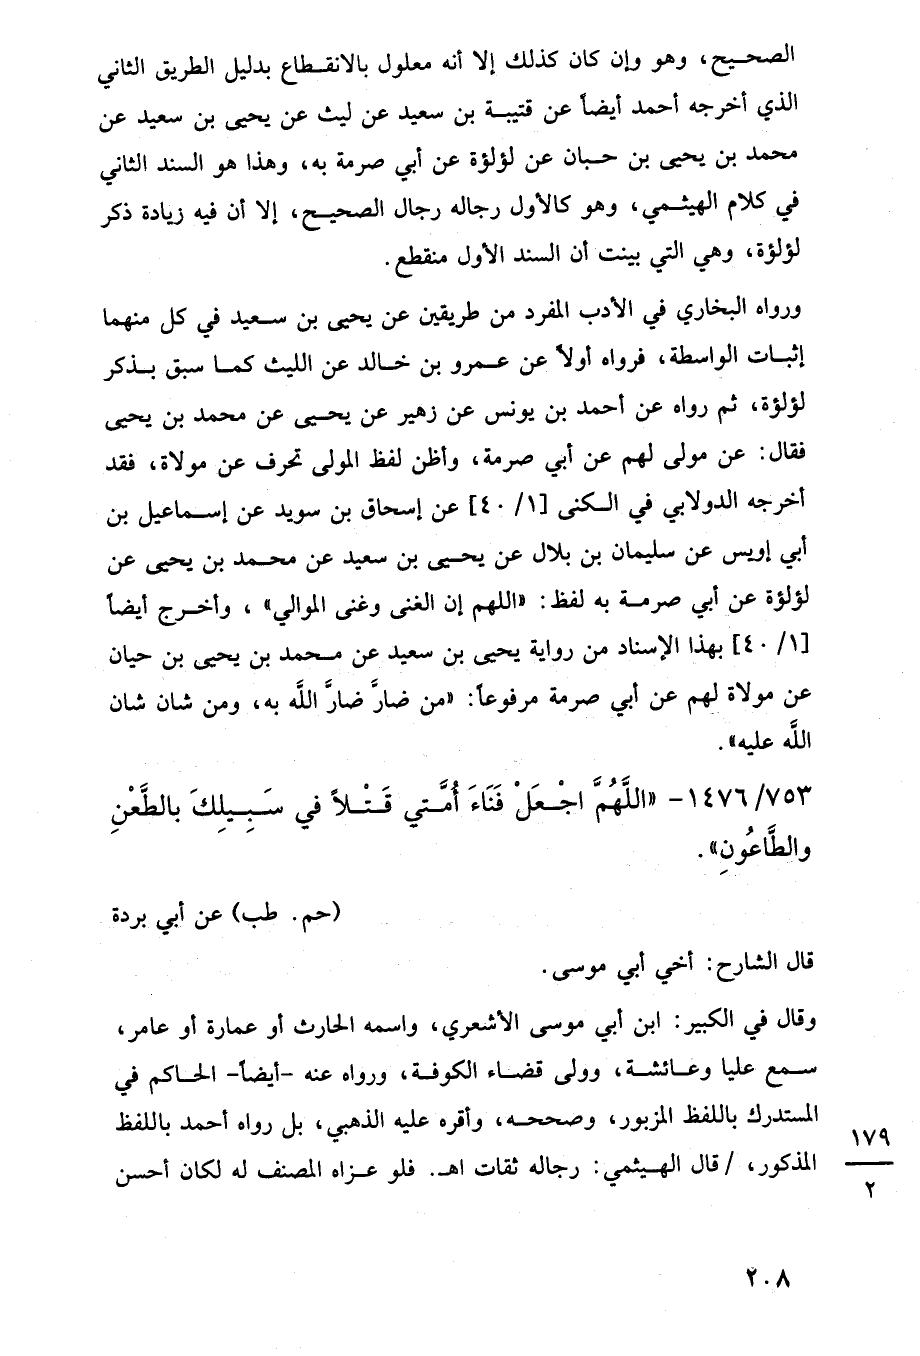 الصحيح، وهو وإن كان كذلك إلا أنه معلول بالانقطاع بدليل الطريق الثاني
الذي أخرجه أحمد أيضاً عن قتيبة بن سعيد عن ليث عن يحيى بن سعيد عن
محمد بن يحيى بن حبان عن لؤلؤة عن أبي صرمة به، وهذا هو السند الثاني
في كلام الهيثمي، وهو كالأول رجاله رجال الصحيح، إلا أن فيه زيادة ذكر
لؤلؤة، وهي التي بينت أن السند الأول منقطع.
ورواه البخاري في الأدب المفرد من طريقين عن يحيى بن سعيد في كل منهما
إثبات الواسطة، فرواه أولاً عن عمرو بن خالد عن الليث كما سبق بذكر
لؤلؤة، ثم رواه عن أحمد بن يونس عن زهير عن يحيى عن محمد بن يحيى
فقال: عن مولى لهم عن أبي صرمة، وأظن لفظ المولى تحرف عن مولاة، فقد
أخرجه الدولابي في الكنى [١/ ٤٠] عن إسحاق بن سويد عن إسماعيل بن
أبي إويس عن سليمان بن بلال عن يحيى بن سعيد عن محمد بن يحيى عن
لؤلؤة عن أبي صرمة به لفظ: «اللهم إن الغنى وغنى الموالي» ، وأخرج أيضاً
[١/ ٤٠] بهذا الإسناد من رواية يحيى بن سعيد عن محمد بن يحيى بن حيان
عن مولاة لهم عن أبي صرمة مرفوعاً: «من ضارَّ ضارَّ اللَّه به، ومن شان شان
اللَّه عليه».
١٤٧٦/٧٥٣- «اللَّهُمَّ اجْعَلْ فَنَاءَ أُمَّتي قَتْلاً في سَبِيلِكَ بالطَّعْنِ
والطَّاعُونِ».
(حم. طب) عن أبي بردة
قال الشارح: أخي أبي موسى.
وقال في الكبير: ابن أبي موسى الأشعري، واسمه الحارث أو عمارة أو عامر،
سمع عليا وعائشة، وولى قضاء الكوفة، ورواه عنه -أيضاً- الحاكم في
المستدرك باللفظ المزبور، وصححه، وأقره عليه الذهبي، بل رواه أحمد باللفظ
المذكور، / قال الهيثمي: رجاله ثقات اهـ. فلو عزاه المصنف له لكان أحسن
١٧٩
٢
٢٠٨